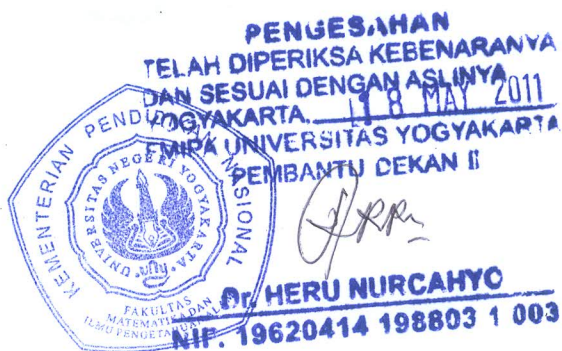 PENGESAHAN
TELAH DIPERIKSA KEBENARANYA
DAN SESUAI DENGAN ASLINYA
YOGYAKARTA, 18 MAY 2011
FMIPA UNIVERSITAS YOGYAKARTA
PEMBANTU DEKAN II
Dr. HERU NURCAHYO
NIP. 19620414 198803 1 003
KEMENTERIAN PENDIDIKAN NASIONAL
UNIVERSITAS NEGERI YOGYAKARTA
uny
FAKULTAS
MATEMATIKA DAN
ILMU PENGETAHUAN ALAM